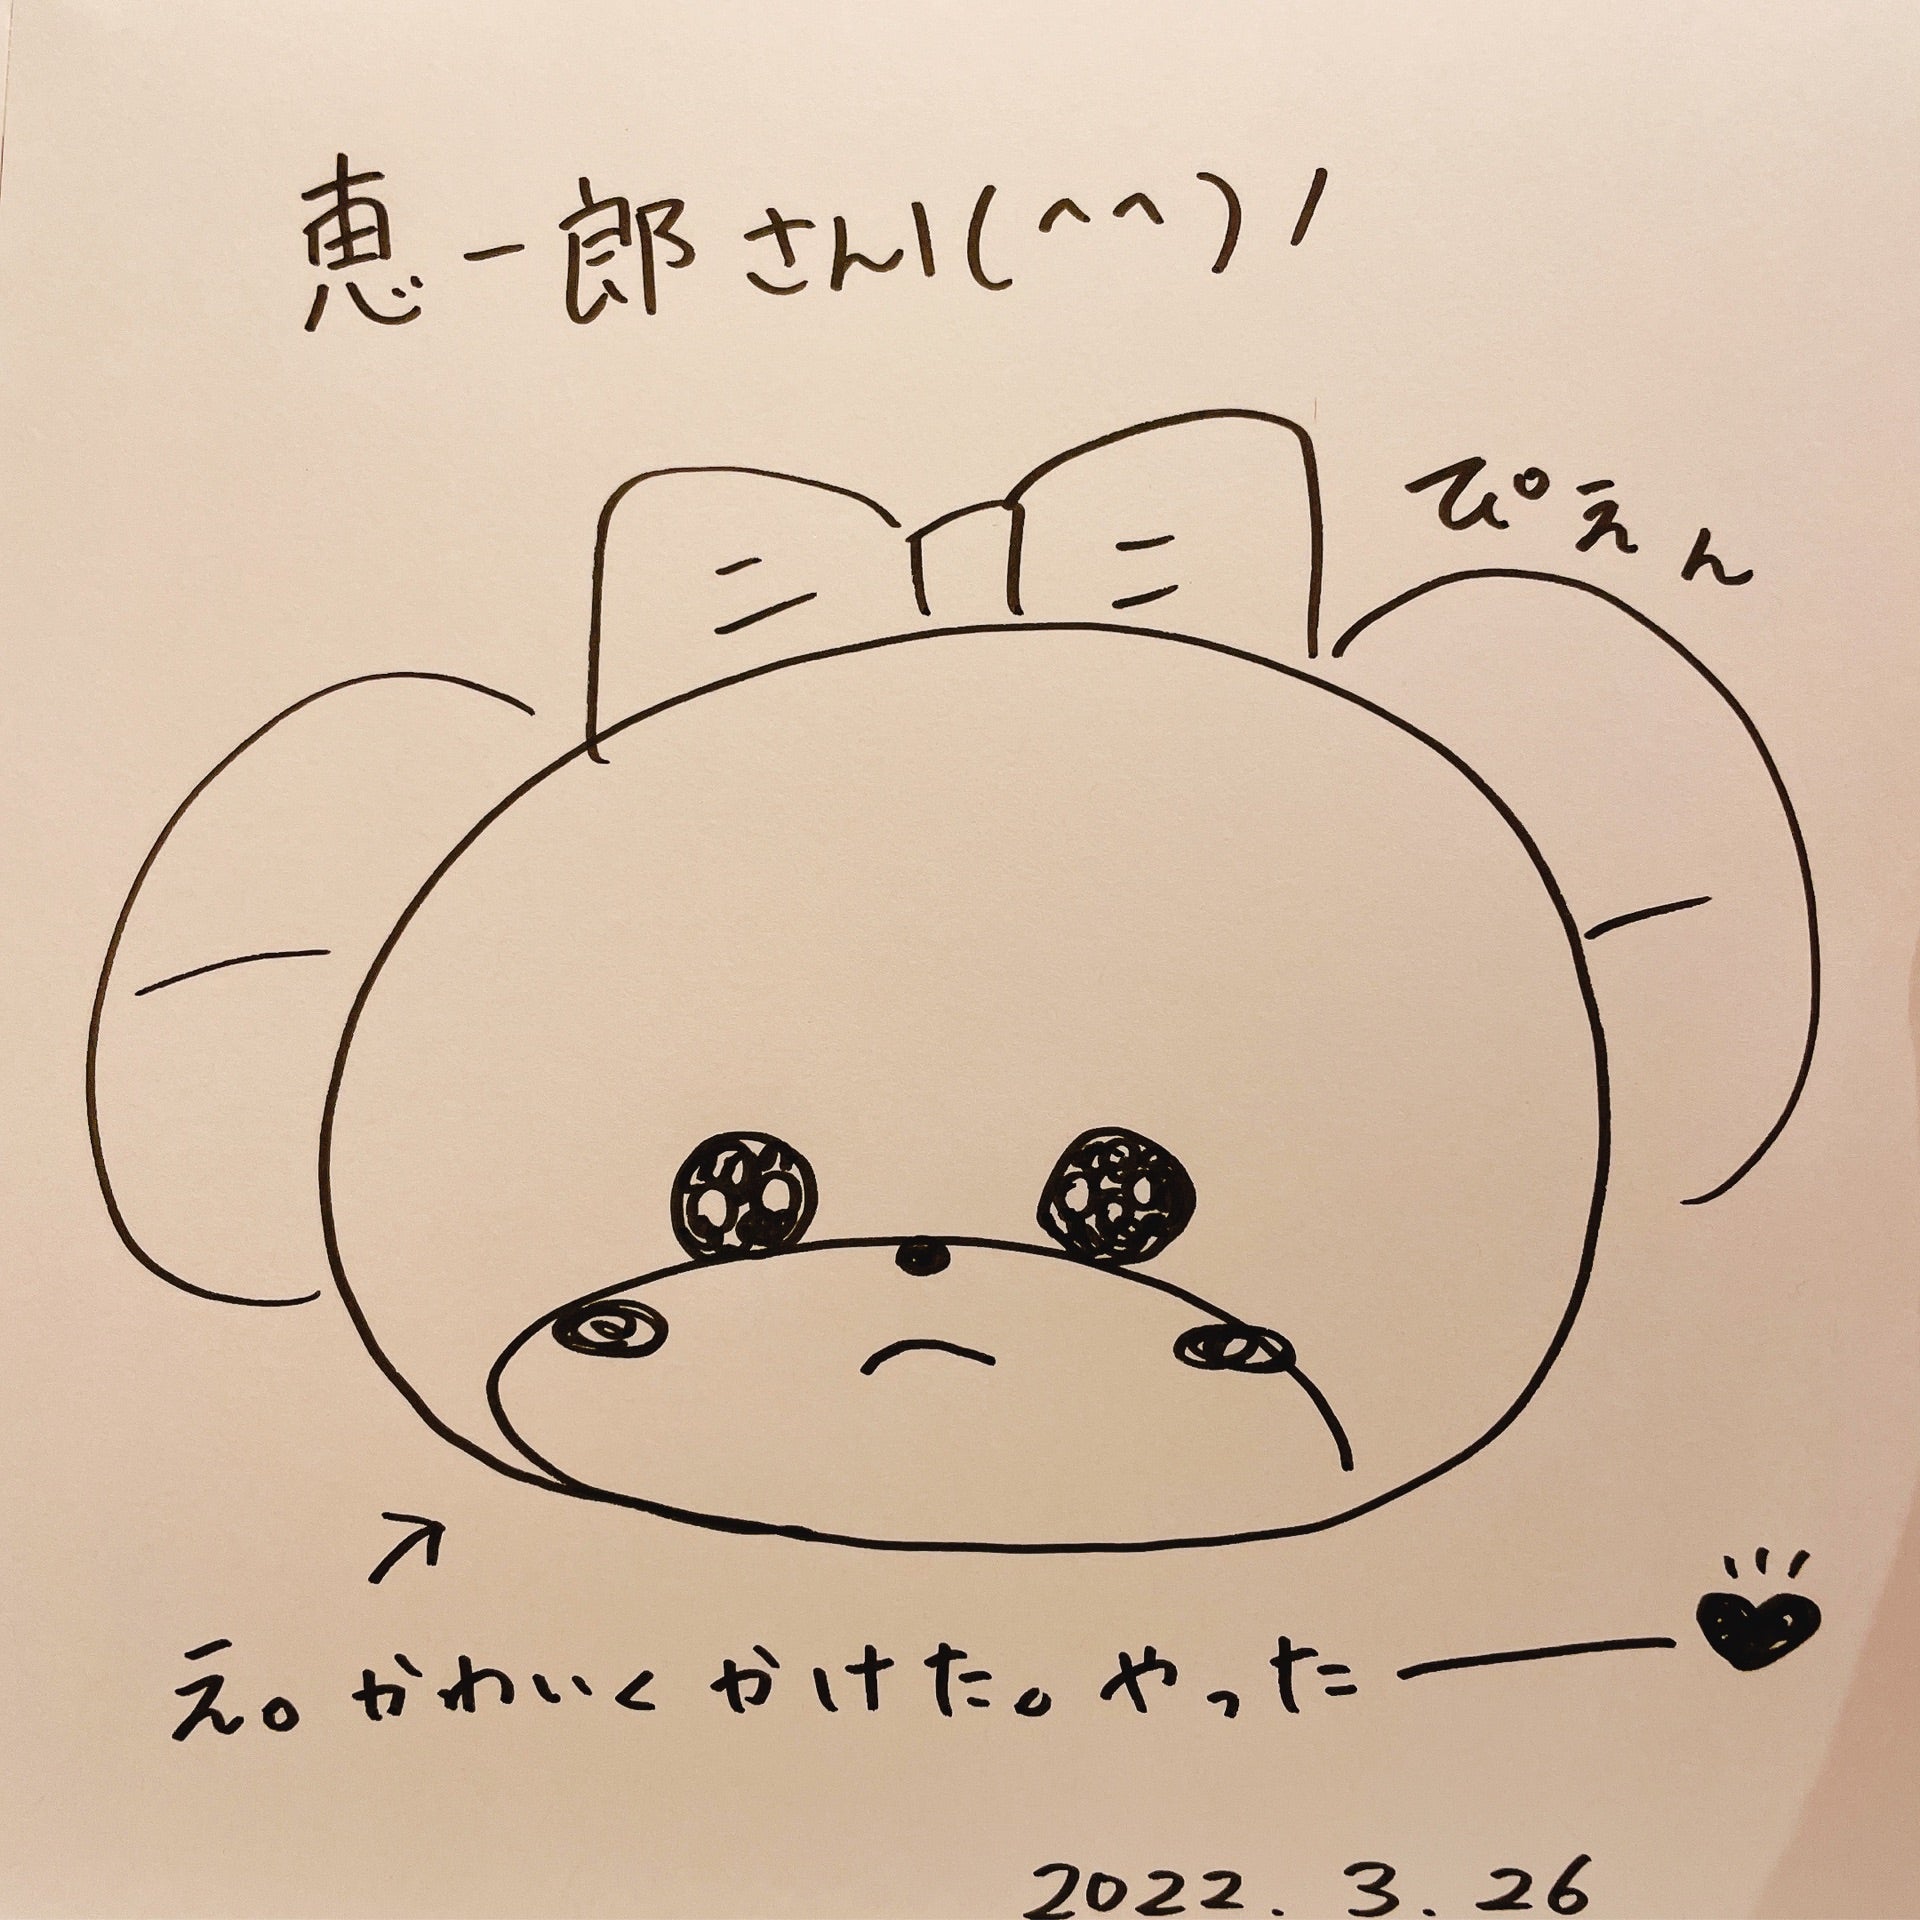 恵一郎さん\(^^)/
ぴえん
え。かわいくかけた。やったー♥
2022.3.26